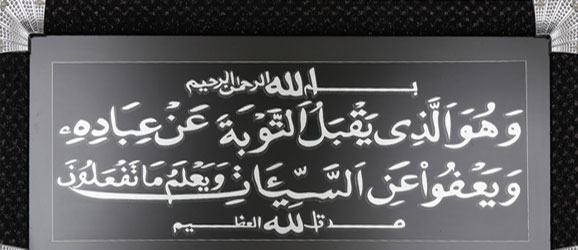 بسم الله الرحمن الرحيم
وَهُوَ الَّذِى يَقْبَلُ التَّوْبَةَ عَنْ عِبَادِهِ
وَيَعْفُواْ عَنِ السَّيِّئَاتِ وَيَعْلَمُ مَا تَفْعَلُونَ
صدق الله العظيم